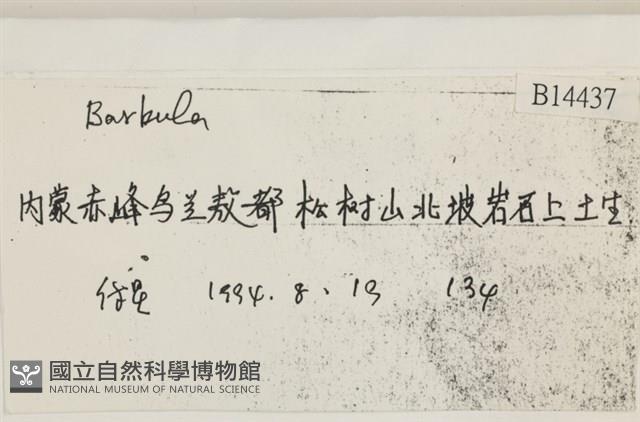 B14437
Barbula
内蒙赤峰乌兰敖都松树山北坡岩石上土生
1994.8.19 134
國立自然科學博物館
NATIONAL MUSEUM OF NATURAL SCIENCE